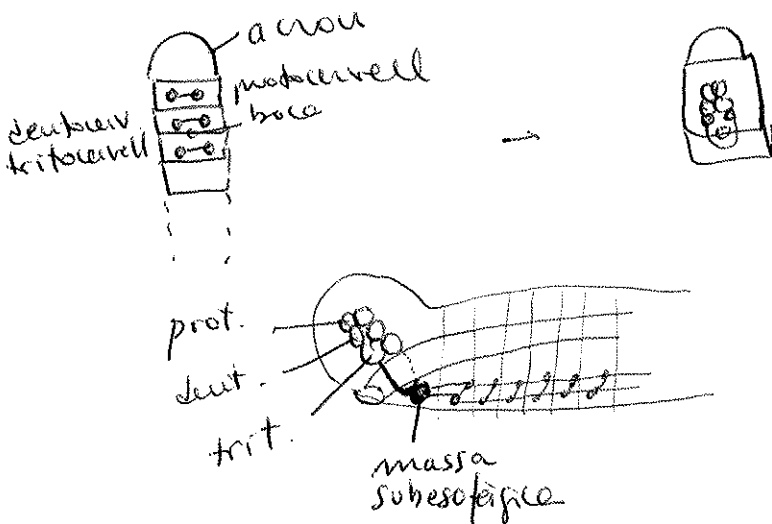 acron
protocervell
boca
deutocerv.
tritocervell
prot.
deut.
trit.
massa
subesofàgica